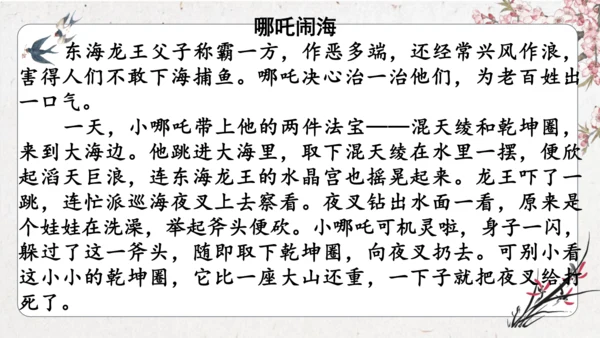 哪吒闹海
东海龙王父子称霸一方，作恶多端，还经常兴风作浪，
害得人们不敢下海捕鱼。哪吒决心治一治他们，为老百姓出
一口气。
一天，小哪吒带上他的两件法宝——混天绫和乾坤圈，
来到大海边。他跳进大海里，取下混天绫在水里一摆，便欣
起滔天巨浪，连东海龙王的水晶宫也摇晃起来。龙王吓了一
跳，连忙派巡海夜叉上去察看。夜叉钻出水面一看，原来是
个娃娃在洗澡，举起斧头便砍。小哪吒可机灵啦，身子一闪，
躲过了这一斧头，随即取下乾坤圈，向夜叉扔去。可别小看
这小小的乾坤圈，它比一座大山还重，一下子就把夜叉给打
死了。